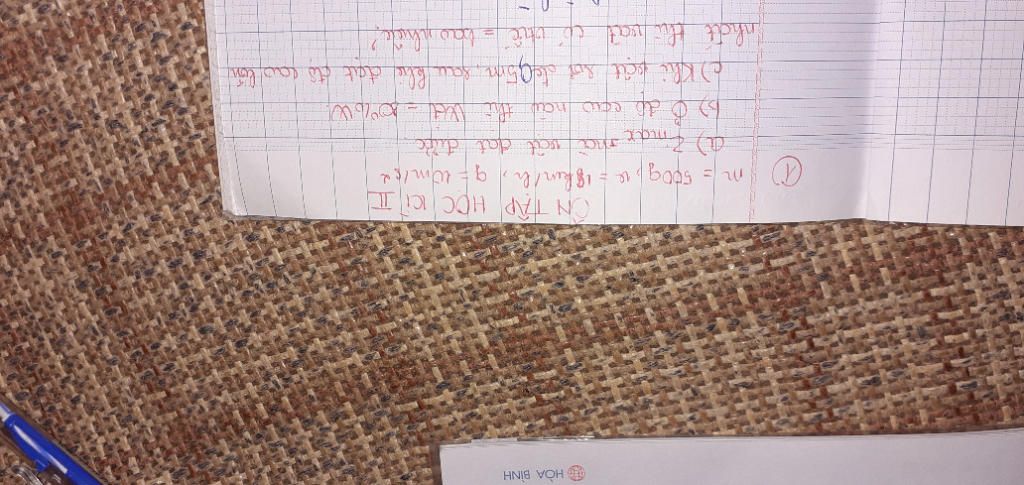 ÔN TẬP HỌC KÌ II
① m = 500g, v = 18km/h, g = 10m/s²
a) Zmax mà vật đạt được
b) Ở độ cao nào thì Wđ = 80% W
c) Khi vật rơi đc 0,5m, sau khi đạt độ cao lớn
nhất thì vật có vtốc = bao nhiêu?
HÒA BÌNH